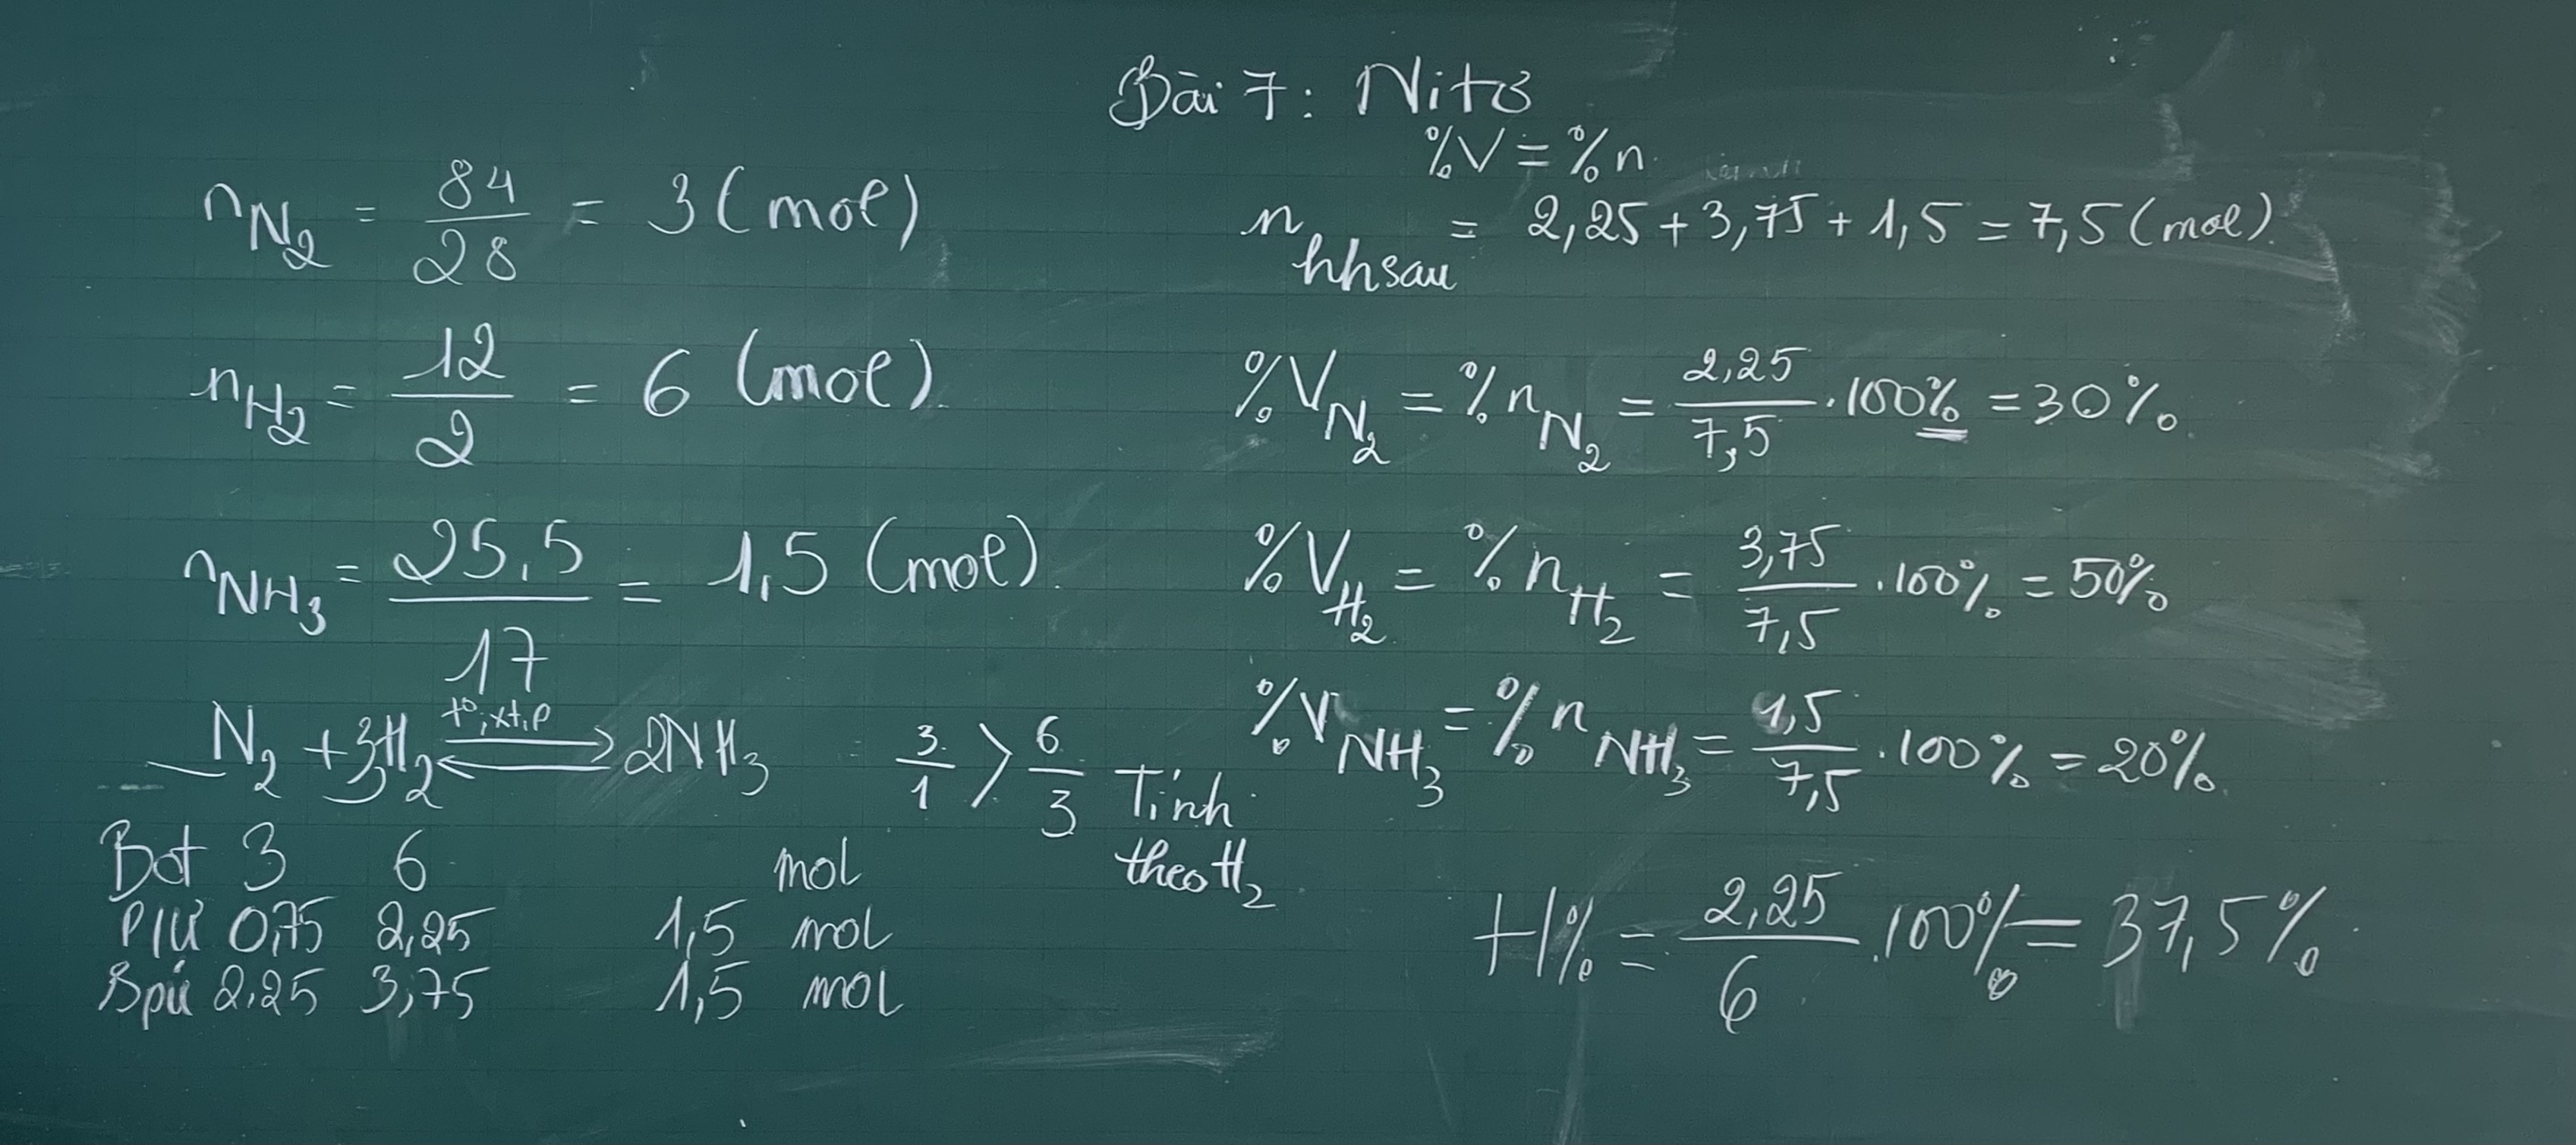 Bài 7: Nitơ
nN₂ = 84/28 = 3 (mol)
nH₂ = 12/2 = 6 (mol)
nNH₃ = 25,5/17 = 1,5 (mol).
N₂ + 3H₂ ⇌ 2NH₃ t°, xt, p
3/1 > 6/3 Tính
theo H₂
Bđt 3 6 mol
PƯ 0,75 2,25 1,5 mol
Spứ 2,25 3,75 1,5 mol
%V = %n
n hh sau = 2,25 + 3,75 + 1,5 = 7,5 (mol).
%V N₂ = %n N₂ = 2,25/7,5 . 100% = 30%.
%V H₂ = %n H₂ = 3,75/7,5 . 100% = 50%
%V NH₃ = %n NH₃ = 1,5/7,5 . 100% = 20%.
H% = 2,25/6 . 100% = 37,5%